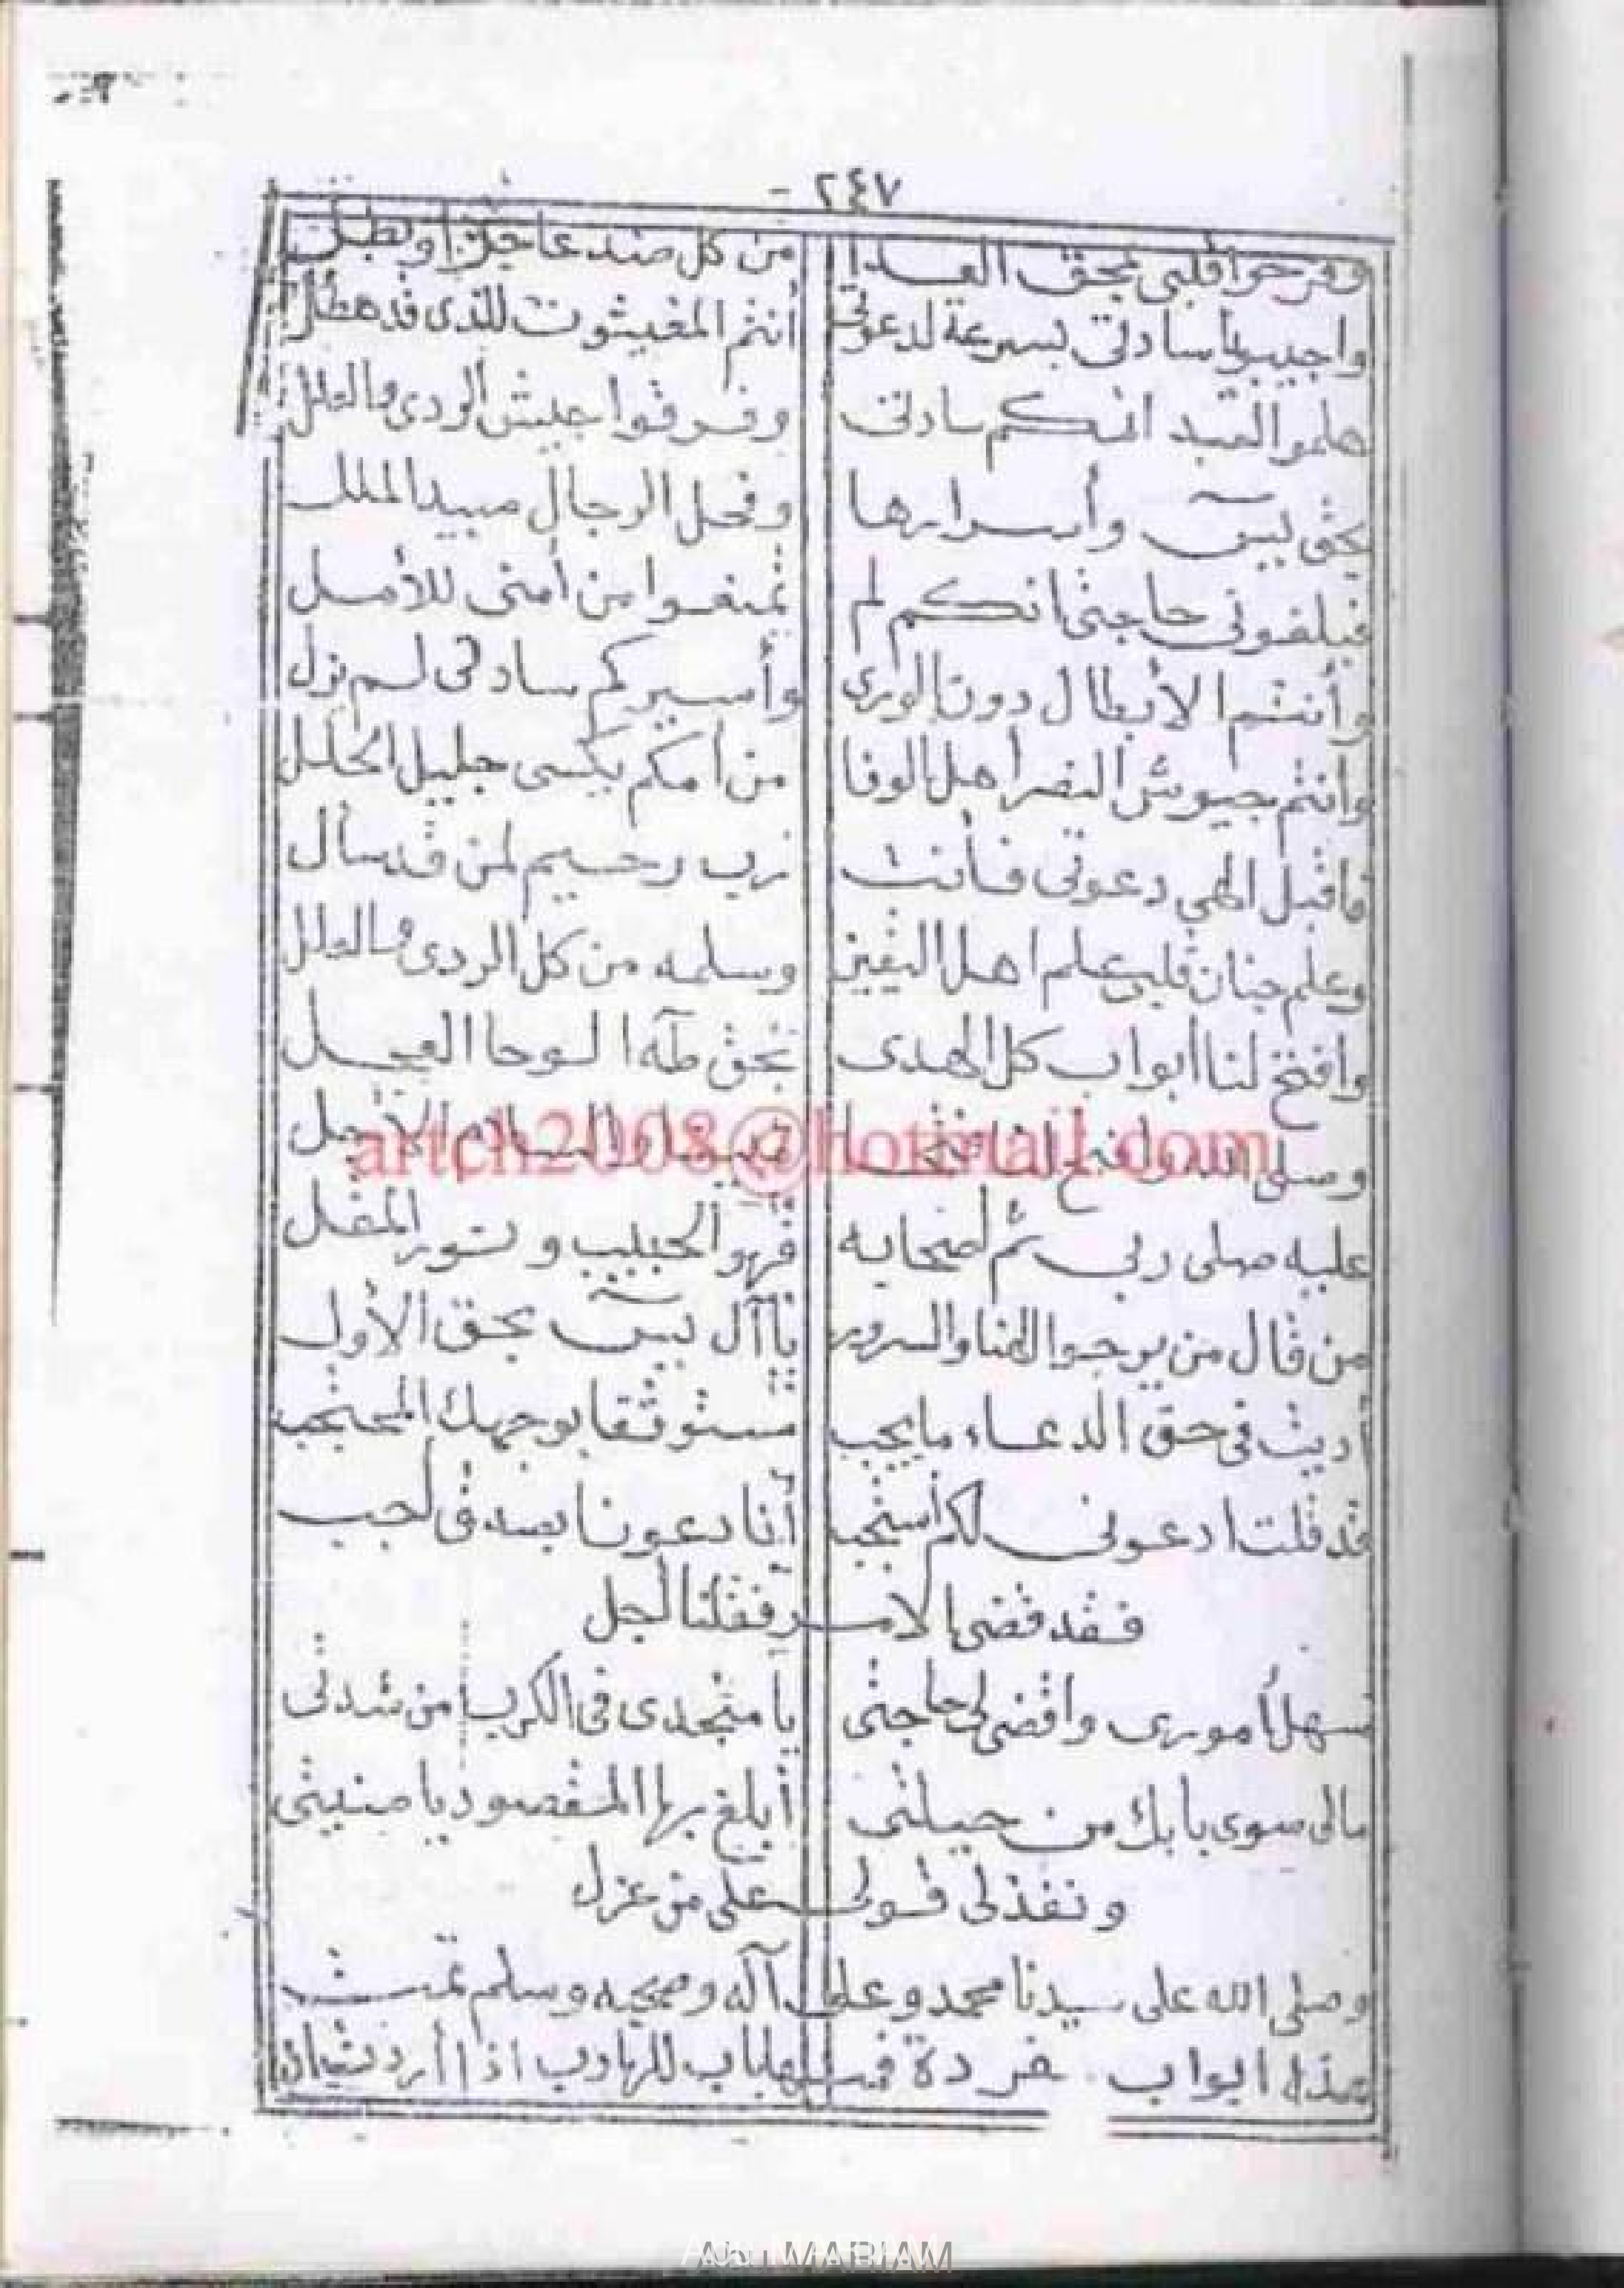 ٢٤٧ -
وفرحوا قلبي بحق العدا من كل ضد عاجلا
واجيبوا يا سادتي بسرعة لدعوتي أنتم المغيثون للذي قد
هلموا العبد انكم سادتي وفرقوا جيش الردى والعلل
بحق يسٓ وأسرارها وفحل الرجال مبيد الملل
فبلغوني حاجتي انكم لم تمنعوا من أمتى للأمل
وأنتم الأبطال دون الورى وأسيركم سادتى لم نزل
وانتم جيوش النصر أهل الوفا من أمكم يكسى جليل الحلل
فاقبل الهي دعوتي فأنت رب رحيم لمن قد سأل
وعلم جنان قلبي علم اهل اليقين وسلمه من كل الردى والعلل
وافتح لنا أبواب كل الهدى بحق طه الوحا العجل
artch2008@hotmail.com
وصلى الله
عليه صلى ربي ثم أصحابه فهو الحبيب ونور المقل
من قال من يرجوا الهنا والسرور يا آل يسٓ بحق الأول
أديت في حق الدعاء ما يجب مستوثقا بوجهك المحتجب
قد قلت ادعوني لكم أستجب أنا دعونا بصدق لجب
فقد قضى الامر فقلنا أجل
سهل أموري واقضى لي حاجتي يا منجدى في الكرب من شدتي
مالى سوى بابك من حيلتي أبلغ بها المقصود يا منيتي
ونفذ لي قولي على من عزل
وصلى الله على سيدنا محمد وعلى آله وصحبه وسلم تمت
هذه ابواب مفردة باب للهارب اذا أردت بيان
Abu MARIAM